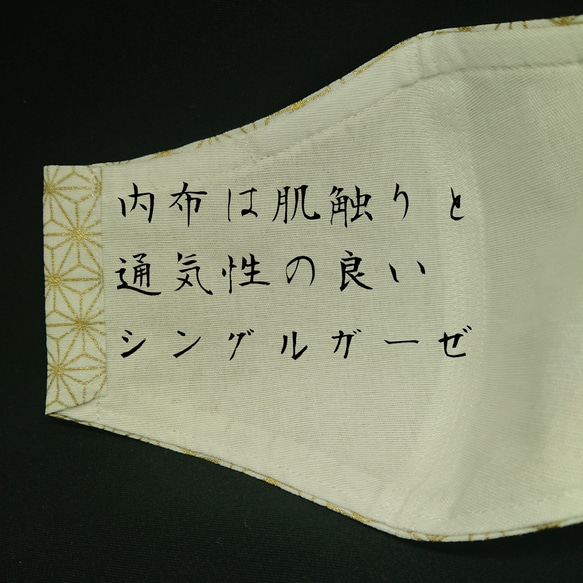 内布は肌触りと
通気性の良い
シングルガーゼ